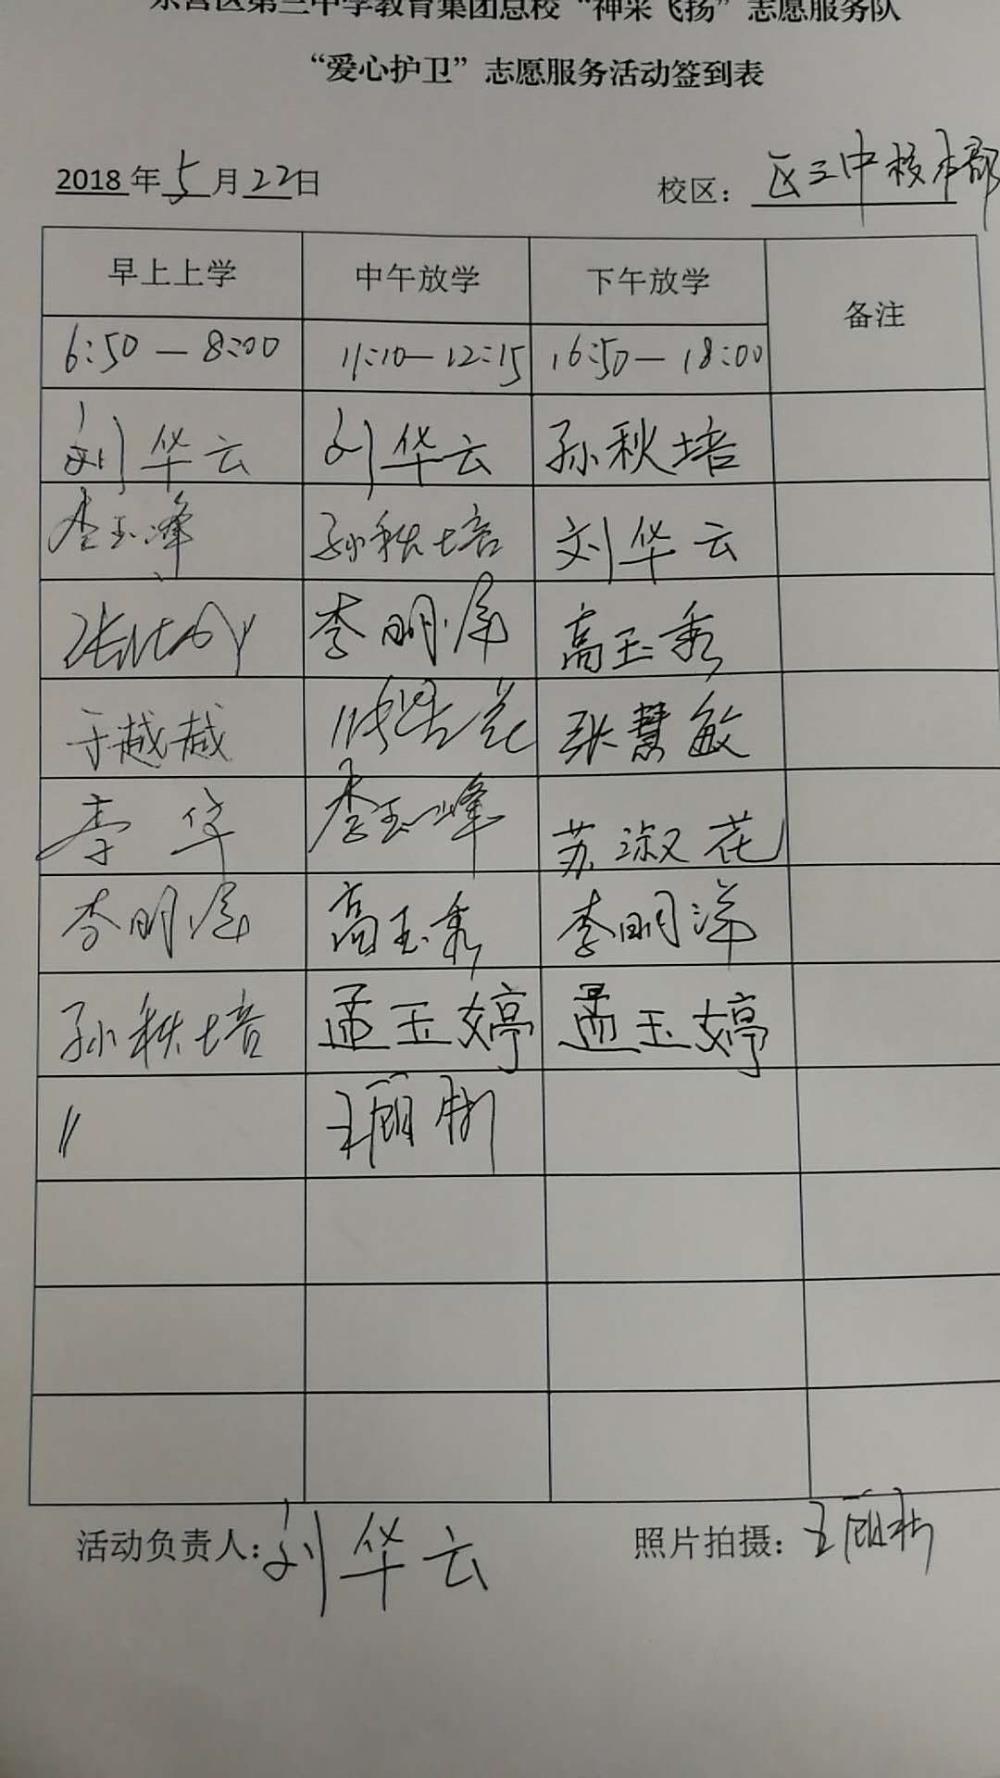 东营区第三中学教育集团总校“神采飞扬”志愿服务队
“爱心护卫”志愿服务活动签到表
2018年5月22日 校区：区三中校本部
早上上学 中午放学 下午放学 备注
6:50—8:00 11:10—12:15 16:50—18:00
刘华云 刘华云 孙秋培
李玉峰 孙秋培 刘华云
李明洋 高玉秀
于越越 张慧敏
李华 李玉峰 苏淑花
李明洋 高玉秀 李明洋
孙秋培 孟玉婷 孟玉婷
〃
活动负责人：刘华云 照片拍摄：